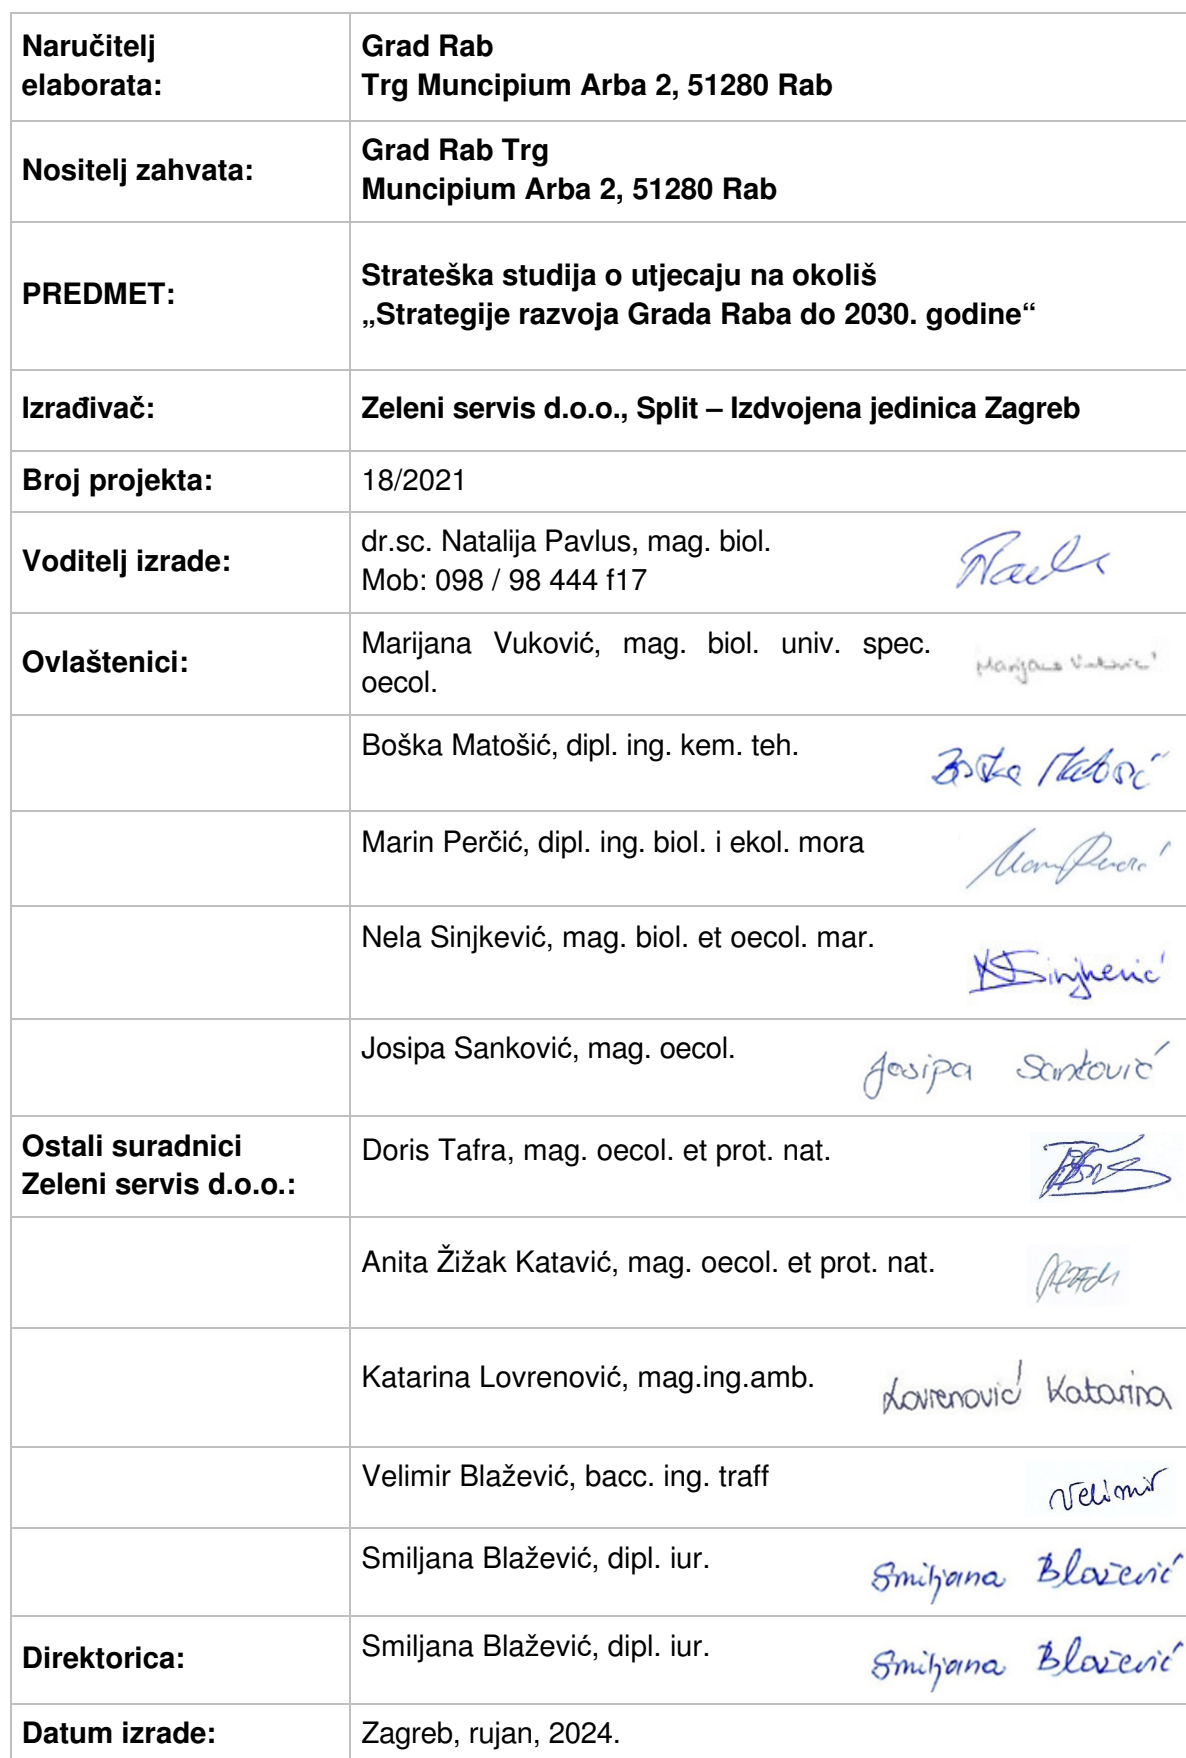 Naručitelj
elaborata:
Grad Rab
Trg Muncipium Arba 2, 51280 Rab
Nositelj zahvata:
Grad Rab Trg
Muncipium Arba 2, 51280 Rab
PREDMET:
Strateška studija o utjecaju na okoliš
„Strategije razvoja Grada Raba do 2030. godine“
Izrađivač:
Zeleni servis d.o.o., Split – Izdvojena jedinica Zagreb
Broj projekta:
18/2021
Voditelj izrade:
dr.sc. Natalija Pavlus, mag. biol.
Mob: 098 / 98 444 f17
Ovlaštenici:
Marijana Vuković, mag. biol. univ. spec.
oecol.
Marijana Vuković
Boška Matošić, dipl. ing. kem. teh.
Boška Matošić
Marin Perčić, dipl. ing. biol. i ekol. mora
Nela Sinjkević, mag. biol. et oecol. mar.
NSinjkević
Josipa Sanković, mag. oecol.
Josipa Sanković
Ostali suradnici
Zeleni servis d.o.o.:
Doris Tafra, mag. oecol. et prot. nat.
Anita Žižak Katavić, mag. oecol. et prot. nat.
Katarina Lovrenović, mag.ing.amb.
Lovrenović Katarina
Velimir Blažević, bacc. ing. traff
Velimir
Smiljana Blažević, dipl. iur.
Smiljana Blažević
Direktorica:
Smiljana Blažević, dipl. iur.
Smiljana Blažević
Datum izrade:
Zagreb, rujan, 2024.